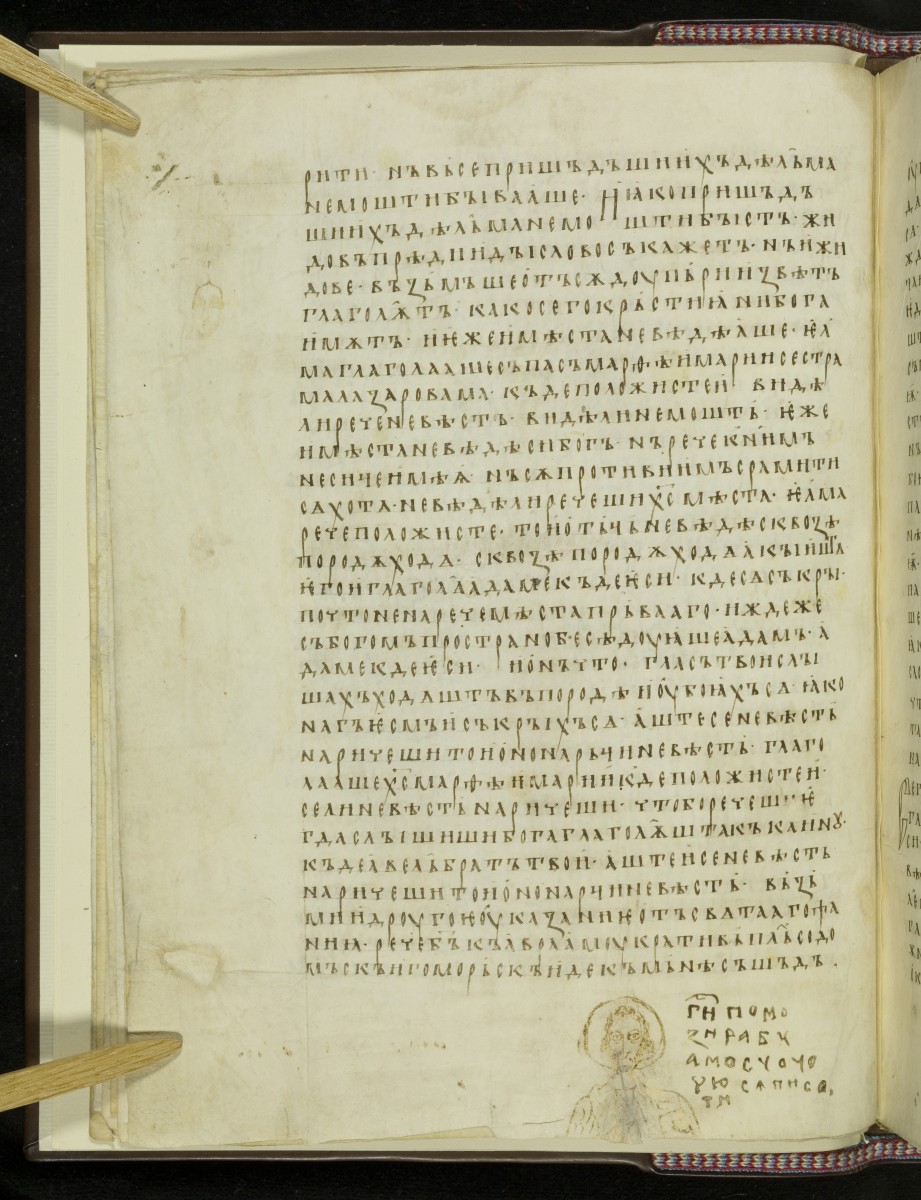 рити· нъ вьсе пришьдъшиихъ дѣльма
не мошти бывааше· ꙗко пришьдъ
шиихъ дѣльма не мошти бысть· жи
довъ прѣдъ нидъі слово съкажетъ· нъ и жи
дове· възьмъше отъсѫдоу пьрии цвѣтъ
глаголѭтъ· како сего крьстиꙗни бога
имѫтъ· иже и мѣста не вѣдѣаше· ѥл
ма глаголааше съпасъ марѳѣ и марии сестра
ма лазаровама· къде положисте и видѣ
ли рече невѣсть· видѣ ли немошть· ѥже
и мѣста не вѣдѣ си богъ· нъ рече к н имъ
не сиче имѣѩ· нъ сѫпротивь имъ срамити
сѧ хотѧ· не вѣдѣ ли речеши х҃с мѣста· ѥльма
рече положисте· то и отьць не вѣдѣ сквозѣ
породѫ ходѧ· сквозѣ породѫ ходѧ акы иштѧ
ѥго и глаголѧ адаме къде ѥси· кде сѧ съкры·
по уто не наречеᲅ мѣста прьвааго· иждеже
съ богомъ пространо бесѣдоуꙗше адамъ· а
даме кде ѥси· и онъ что· гласъ твои слы
шахъ ходѧшть въ породѣ и оубоꙗхъ сѧ· ꙗко
нагъ ѥсмь и съкрыхъ сѧ· аште се невѣсть
наричеши то и оно наръчи невѣсть· глаго
лааше х҃с марѳѣ и марии къде положисте и·
се ли невѣсть наричеши· что бо речеши ѥ
гда слышиши бога глаголѭшта къ каину·
къде авель братъ твои· аште и се невѣсть
наричеши то и оно нарчи невѣсть· възь
ми и дроугоѥ оуказаниѥ отъ свѧтааго фа
ниꙗ· рече б҃ъ къ авраамоу кратива плъ содо
мьскъ и гоморьскъ иде къ мьнѣ съшьдъ·
г҃и помо
зи рабу
амосу очо
ую съписа
ти